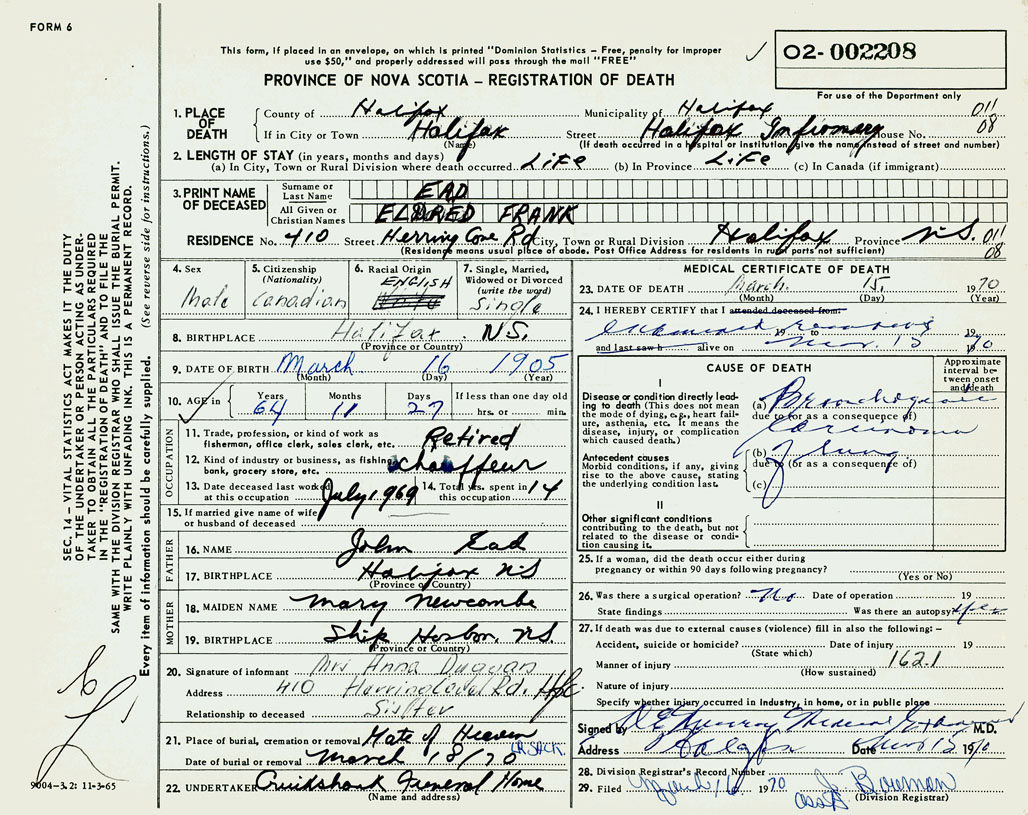 FORM 6
This form, if placed in an envelope, on which is printed "Dominion Statistics – Free, penalty for improper
use $50," and properly addressed will pass through the mail "FREE"
O2-002208
For use of the Department only
PROVINCE OF NOVA SCOTIA – REGISTRATION OF DEATH
1. PLACE OF DEATH
County of Halifax Municipality of Halifax 011
If in City or Town Halifax Street Halifax Infirmary House No. 08
(Name) (If death occurred in a hospital or institution, give the name instead of street and number)
2. LENGTH OF STAY (in years, months and days)
(a) In City, Town or Rural Division where death occurred. LIFE (b) In Province LIFE (c) In Canada (if immigrant)
3. PRINT NAME OF DECEASED
Surname or Last Name EAD
All Given or Christian Names ELDRED FRANK
RESIDENCE No. 410 Street Herring Cove Rd City, Town or Rural Division Halifax Province N.S. 011
(Residence means usual place of abode. Post Office Address for residents in rural parts not sufficient) 08
4. Sex Male
5. Citizenship (Nationality) Canadian
6. Racial Origin ENGLISH
7. Single, Married, Widowed or Divorced (write the word) Single
8. BIRTHPLACE Halifax N.S.
(Province or Country)
9. DATE OF BIRTH March 16 1905
(Month) (Day) (Year)
10. AGE in Years 64 Months 11 Days 27 If less than one day old hrs. or min.
OCCUPATION
11. Trade, profession, or kind of work as fisherman, office clerk, sales clerk, etc. Retired
12. Kind of industry or business, as fishing, bank, grocery store, etc. chauffeur
13. Date deceased last worked at this occupation July 1969 14. Total yrs. spent in this occupation 14
15. If married give name of wife or husband of deceased
FATHER
16. NAME John Ead
17. BIRTHPLACE Halifax NS
(Province or Country)
MOTHER
18. MAIDEN NAME Mary Newcombe
19. BIRTHPLACE Ship Harbor N.S.
(Province or Country)
20. Signature of informant Mrs Anna Duggan
Address 410 Herring Cove Rd. Hfx.
Relationship to deceased Sister
21. Place of burial, cremation or removal Mate of Heaven
Date of burial or removal March 18/70 LR. SACK.
22. UNDERTAKER Cruikshank Funeral Home
(Name and address)
MEDICAL CERTIFICATE OF DEATH
23. DATE OF DEATH March 15, 1970
(Month) (Day) (Year)
24. I HEREBY CERTIFY that I attended deceased from:
19 to 19
and last saw h alive on Mar. 15 1970
CAUSE OF DEATH
Approximate interval between onset and death
I
Disease or condition directly leading to death (This does not mean the mode of dying, e.g., heart failure, asthenia, etc. It means the disease, injury, or complication which caused death.)
(a) Bronchogenic
due to (or as a consequence of)
Carcinoma
Antecedent causes
Morbid conditions, if any, giving rise to the above cause, stating the underlying condition last.
(b) of lung
due to (or as a consequence of)
(c)
II
Other significant conditions contributing to the death, but not related to the disease or condition causing it.
25. If a woman, did the death occur either during pregnancy or within 90 days following pregnancy?
(Yes or No)
26. Was there a surgical operation? No Date of operation 19
State findings Was there an autopsy? Yes
27. If death was due to external causes (violence) fill in also the following: –
Accident, suicide or homicide? Date of injury 19
(State which)
Manner of injury 162.1
(How sustained)
Nature of injury
Specify whether injury occurred in Industry, in home, or in public place
Signed by M.D.
Address Halifax Date Mar 15 1970
28. Division Registrar's Record Number
29. Filed March 16 1970 Bowman
(Division Registrar)
SEC. 14 – VITAL STATISTICS ACT MAKES IT THE DUTY
OF THE UNDERTAKER OR PERSON ACTING AS UNDER-
TAKER TO OBTAIN ALL THE PARTICULARS REQUIRED
IN THE "REGISTRATION OF DEATH" AND TO FILE THE
SAME WITH THE DIVISION REGISTRAR WHO SHALL ISSUE THE BURIAL PERMIT.
WRITE PLAINLY WITH UNFADING INK. THIS IS A PERMANENT RECORD.
Every item of information should be carefully supplied. (See reverse side for instructions.)
9004-3.2: 11-3-65